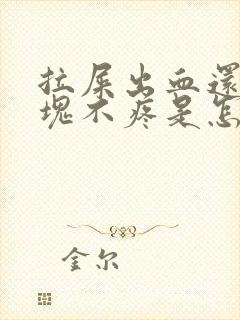 拉屎出血還
塊不疼是怎
金尔